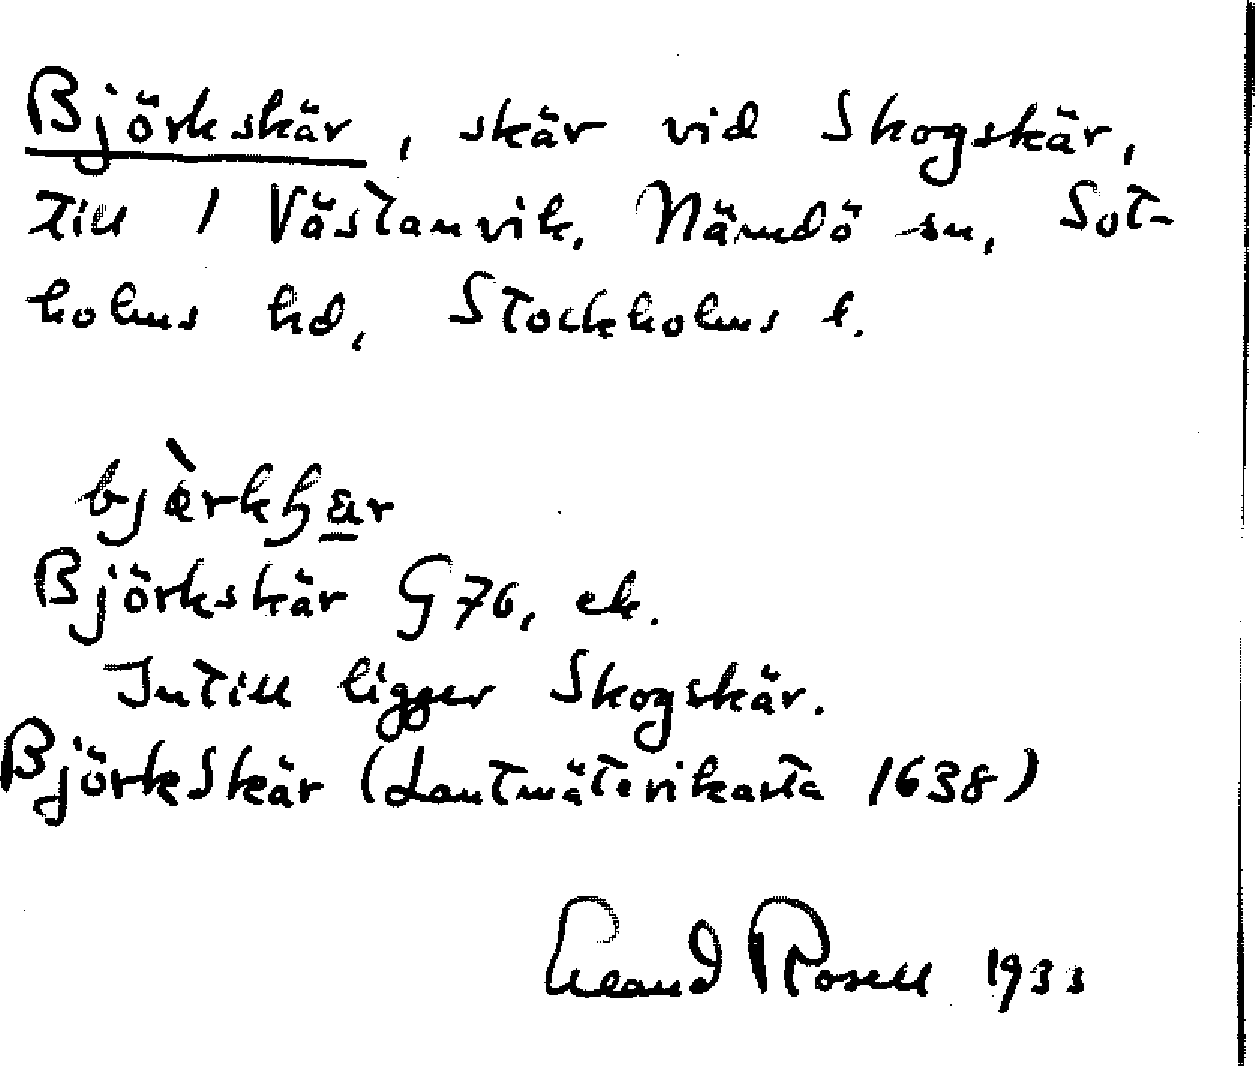 Björkskär, skär vid Skogskär,
till 1 Västanvik, Nämdö sn, Sot-
holms hd, Stockholms l.
Björkskär G 76, ek.
Intill ligger Skogskär.
BjörkeSkär (Lantmäterikarta 1638)
Rosell 1933